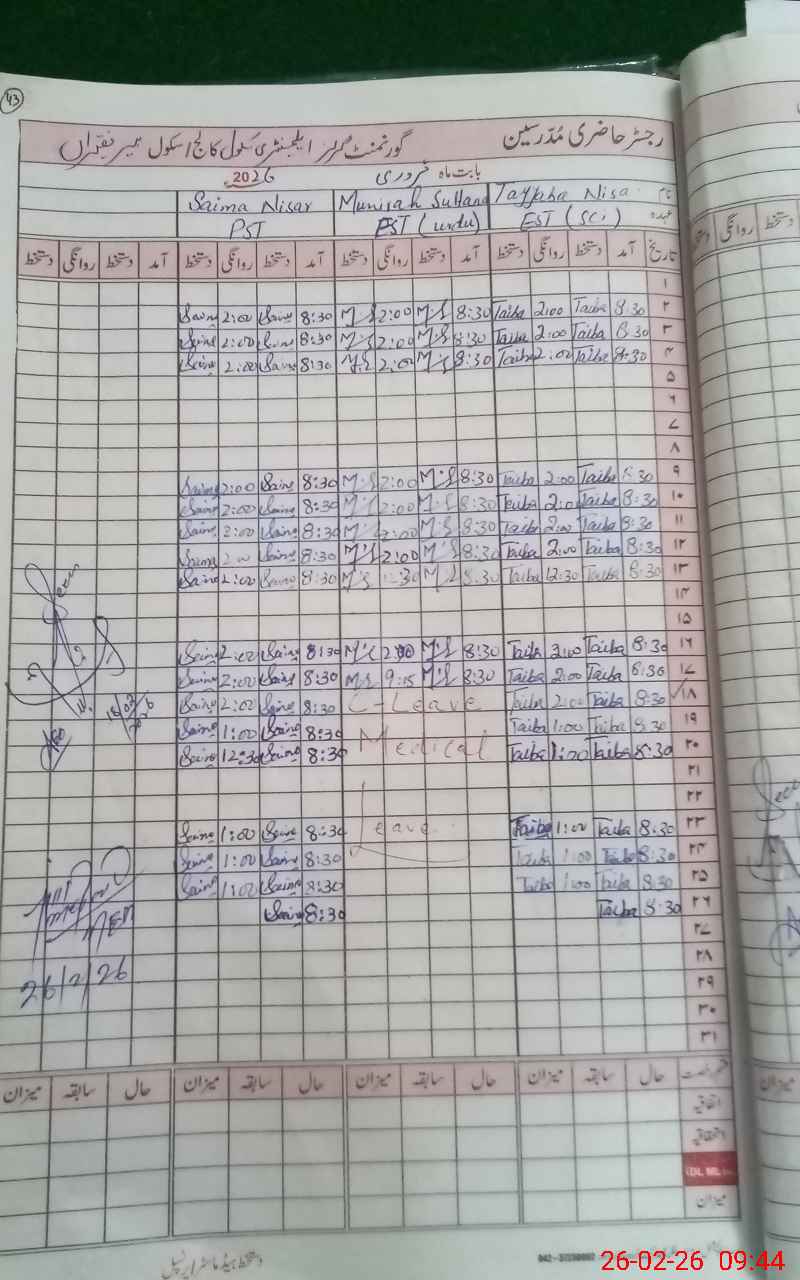 43
رجسٹر حاضری مُدرسین گورنمنٹ گرلز ایلیمنٹری سکول کالج اسکول
بابت ماہ فروری 2026
نام Tayyaba Nisa Munirah Sultana Saima Nisar
عہدہ EST (Sci) EST (urdu) PST
تاریخ آمد دستخط روانگی دستخط آمد دستخط روانگی دستخط آمد دستخط روانگی دستخط آمد دستخط روانگی دستخط
۱
۲ 8:30 Taiba 2:00 Taiba 8:30 M.S 2:00 M.S 8:30 Saima 2:00 Saima
۳ 8:30 Taiba 2:00 Taiba 8:30 M.S 2:00 M.S 8:30 Saima 2:00 Saima
۴ 8:30 Taiba 2:00 Taiba 8:30 M.S 2:00 M.S 8:30 Saima 2:00 Saima
۵
۶
۷
۸
۹ 8:30 Taiba 2:00 Taiba 8:30 M.S 2:00 M.S 8:30 Saima 2:00 Saima
۱۰ 8:30 Taiba 2:00 Taiba 8:30 M.S 2:00 M.S 8:30 Saima 2:00 Saima
۱۱ 8:30 Taiba 2:00 Taiba 8:30 M.S 2:00 M.S 8:30 Saima 2:00 Saima
۱۲ 8:30 Taiba 2:00 Taiba 8:30 M.S 2:00 M.S 8:30 Saima 2:00 Saima
۱۳ 8:30 Taiba 12:30 Taiba 8:30 M.S M.S 8:30 Saima 2:00 Saima
۱۴
۱۵
۱۶ 8:30 Taiba 2:00 Taiba 8:30 M.S 2:00 M.S 8:30 Saima 2:00 Saima
۱۷ 8:30 Taiba 2:00 Taiba 8:30 M.S 9:15 M.S 8:30 Saima 2:00 Saima
۱۸ 8:30 Taiba 2:00 Taiba C-Leave 8:30 Saima 2:00 Saima
۱۹ 8:30 Taiba 1:00 Taiba 8:30 Saima 1:00 Saima
۲۰ 8:30 Taiba 1:00 Taiba Medical 8:30 Saima 12:30 Saima
۲۱
۲۲
۲۳ 8:30 Taiba 1:00 Taiba Leave 8:30 Saima 1:00 Saima
۲۴ 8:30 Taiba 1:00 Taiba 8:30 Saima 1:00 Saima
۲۵ 8:30 Taiba 1:00 Taiba 8:30 Saima 1:00 Saima
۲۶ 8:30 Taiba 8:30 Saima
۲۷
۲۸
۲۹
۳۰
۳۱
18/02/2026
26/2/26
حال سابقہ میزان حال سابقہ میزان حال سابقہ میزان حال سابقہ میزان
اتفاقیہ
میزان
دستخط ہیڈ ماسٹر / پرنسپل
26-02-26 09:44